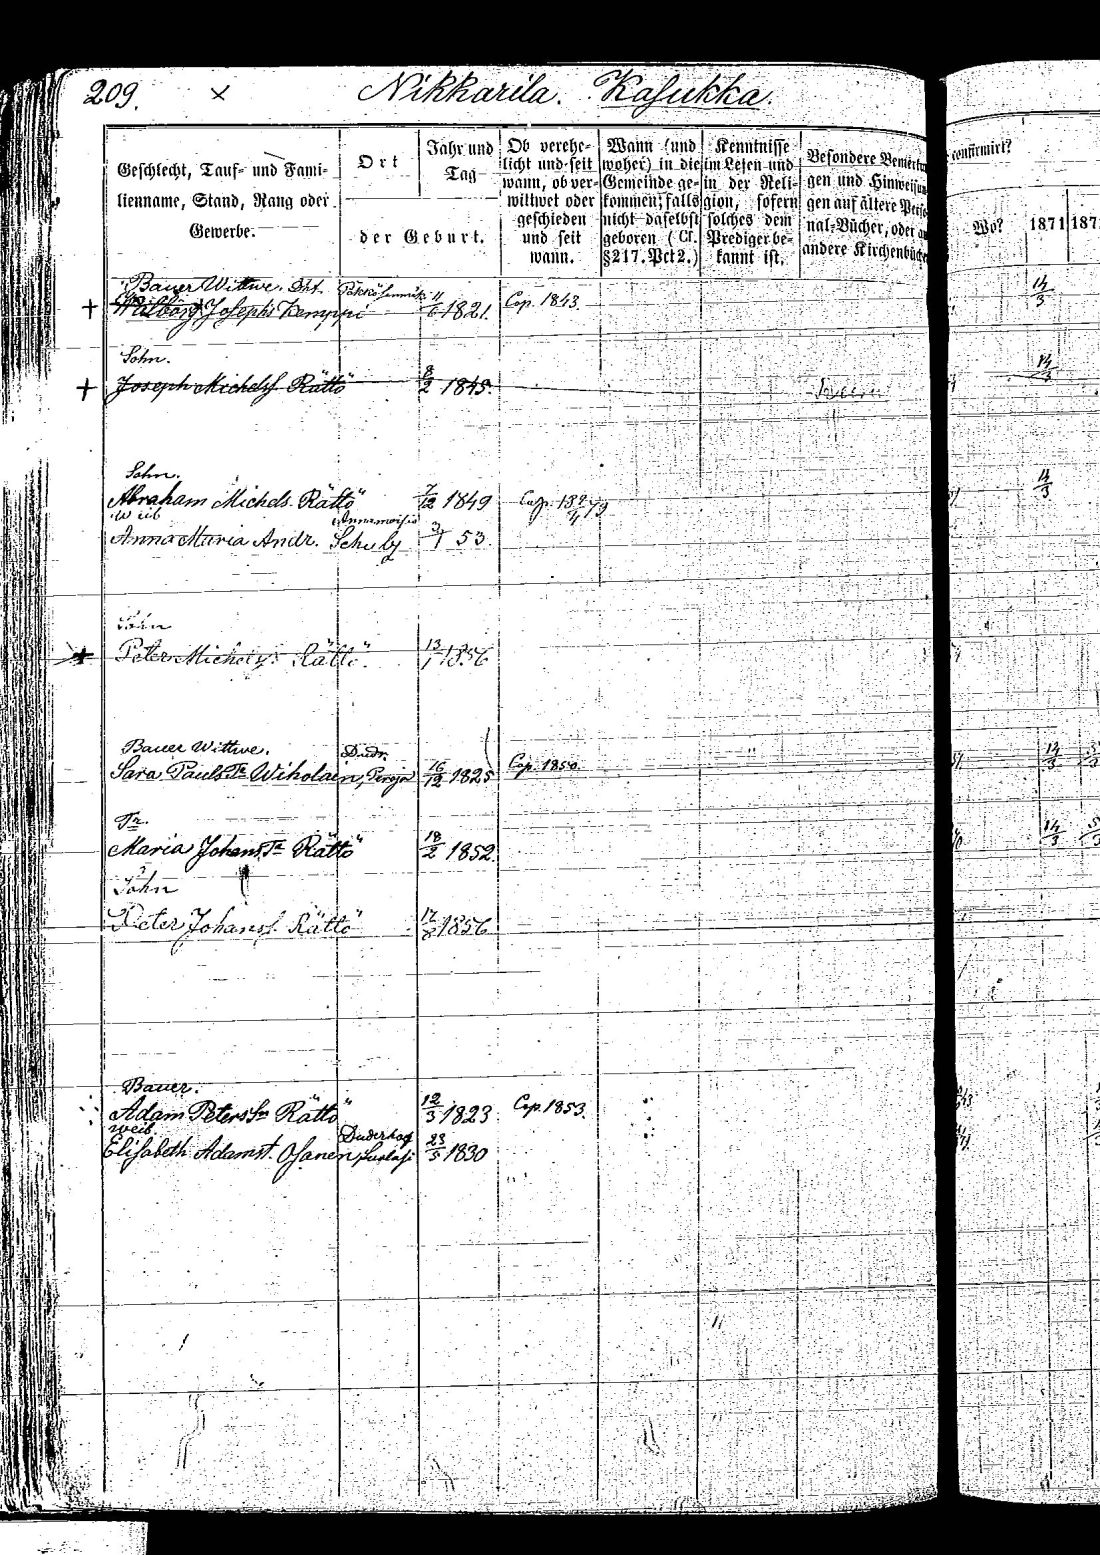 209. × Nikkarila. Kasukka.
Geschlecht, Tauf- und Fami-
lienname, Stand, Rang oder
Gewerbe.
Ort
der Geburt.
Jahr und
Tag
Ob verehe-
licht und seit
wann, ob ver-
wittwet oder
geschieden
und seit
wann.
Wann (und
woher) in die
Gemeinde ge-
kommen, falls
nicht daselbst
geboren (Cf.
§217. Pct 2.)
Kenntnisse
im Lesen und
in der Reli-
gion, sofern
solches dem
Prediger be-
kannt ist.
Besondere Bemerkun
gen und Hinweisun
gen auf ältere Perso
nal-Bücher, oder an
andere Kirchenbüche
confirmirt?
Wo?
1871
187
Bauer Wittwe.
† Josephs Kemppi 11/6 1821. Cop. 1843. 14/3
Sohn.
† Joseph Michelss. Rättö 8/2 1845. 14/3
Sohn.
Abraham Michels. Rättö 7/12 1849 14/3
Weib
Anna Maria Andr. 3/1 53.
Sohn
Peter Michels. Rättö. 13/1 1856
Bauer Wittwe. Dudr.
Sara Pauls Tr Wiholain, 16/12 1825 Cop. 1850. 14/3
Tr.
Maria Johans Tr Rättö 18/2 1852. 14/3
Sohn
Peter Johanss. Rättö 1856
Bauer.
Adam Peters Sn Rättö 12/3 1823 Cop. 1853.
Weib Duderhof
Elisabeth Adamst. Osanen, 23/5 1830